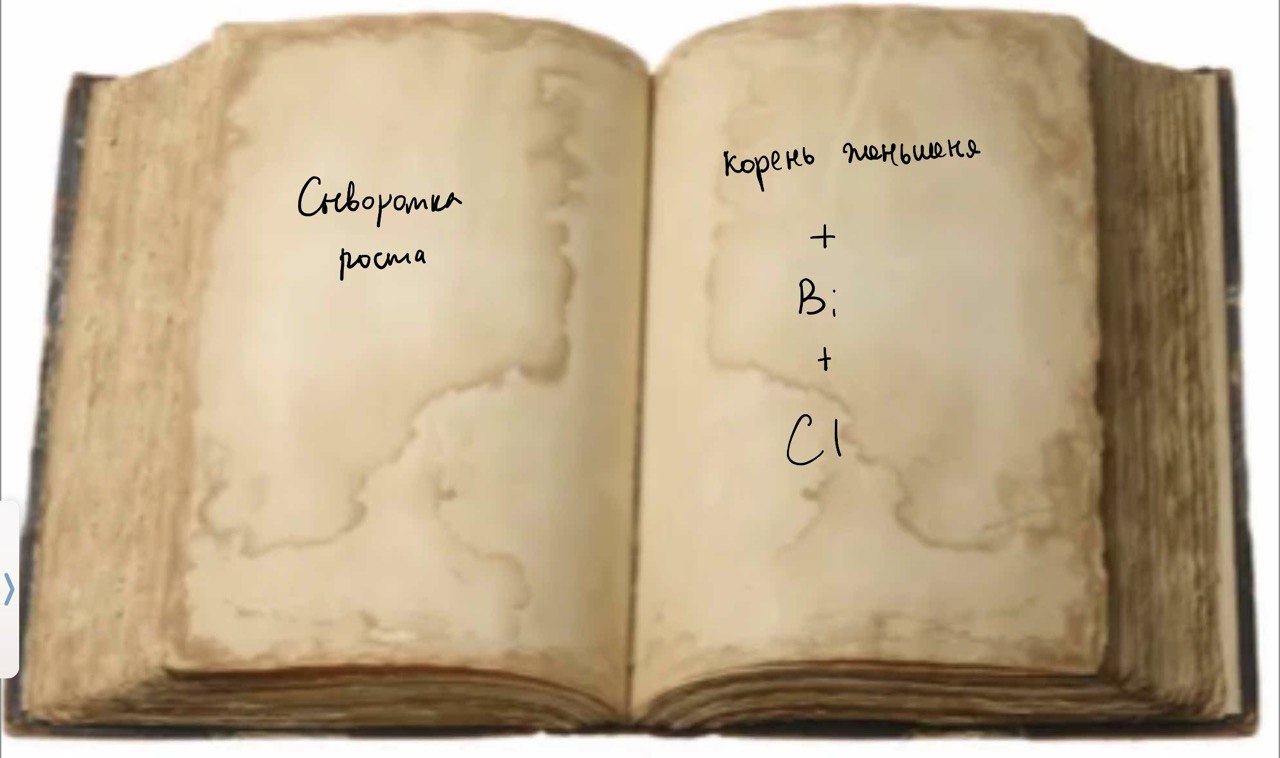 Сыворотка
роста
корень женьшеня
+
Bi
+
Cl